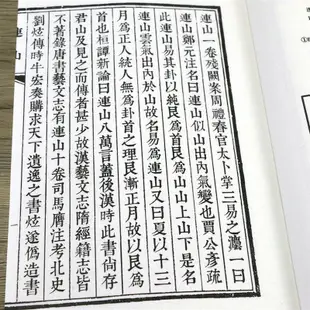 連山一卷殘闕案周禮春官太卜掌三易之灋一曰
連山鄭元注名曰連山似山出內氣變也賈公彥疏
此連山易其卦以純艮爲首艮爲山山上山下是名
連山雲氣出內於山故名易爲連山又曰夏以十三
月爲正人統人無爲卦首之理艮漸正月故以艮爲
首也桓譚新論曰連山八萬言蓋後漢時此書尙存
君山及見之而傳者甚少故漢藝文志隋經籍志皆
不著錄唐書藝文志有連山十卷司馬膺注考北史
劉炫傳時牛宏奏購求天下遺逸之書炫遂僞造書
連山